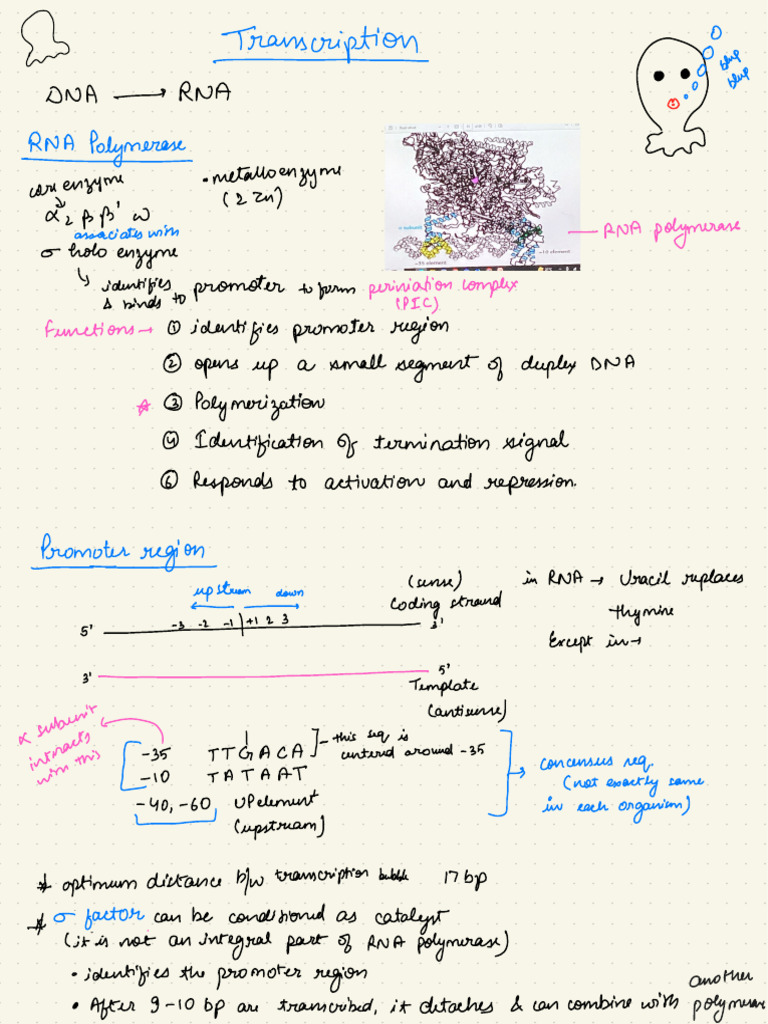 Transcription
blup
blup
DNA → RNA
RNA Polymerase
core enzyme
α2 β β' ω
associates with
σ holo enzyme
• metalloenzyme
(2 Zn)
RNA polymerase
↳ identifies & binds to promoter to form periniation complex
(PIC)
Functions → ① identifies promoter region
② opens up a small segment of duplex DNA
☆ ③ Polymerization
④ Identification of termination signal
⑥ Responds to activation and repression.
Promoter region
upstream down
(sense)
Coding strand
5' -3 -2 -1 +1 2 3 3'
3' 5'
Template
(antisense)
in RNA → Uracil replaces
thymine
Except in →
α subunit
interacts
with this
-35 TTGACA ] - this seq is
centered around -35
-10 TATAAT
-40, -60 UP element
(upstream)
concensus req.
(not exactly same
in each organism)
* optimum distance b/w transcription bubble 17 bp
* σ factor can be conditioned as catalyst
(it is not an integral part of RNA polymerase)
• identifies the promoter region
• After 9-10 bp are transcribed, it detaches & can combine with another polymerase